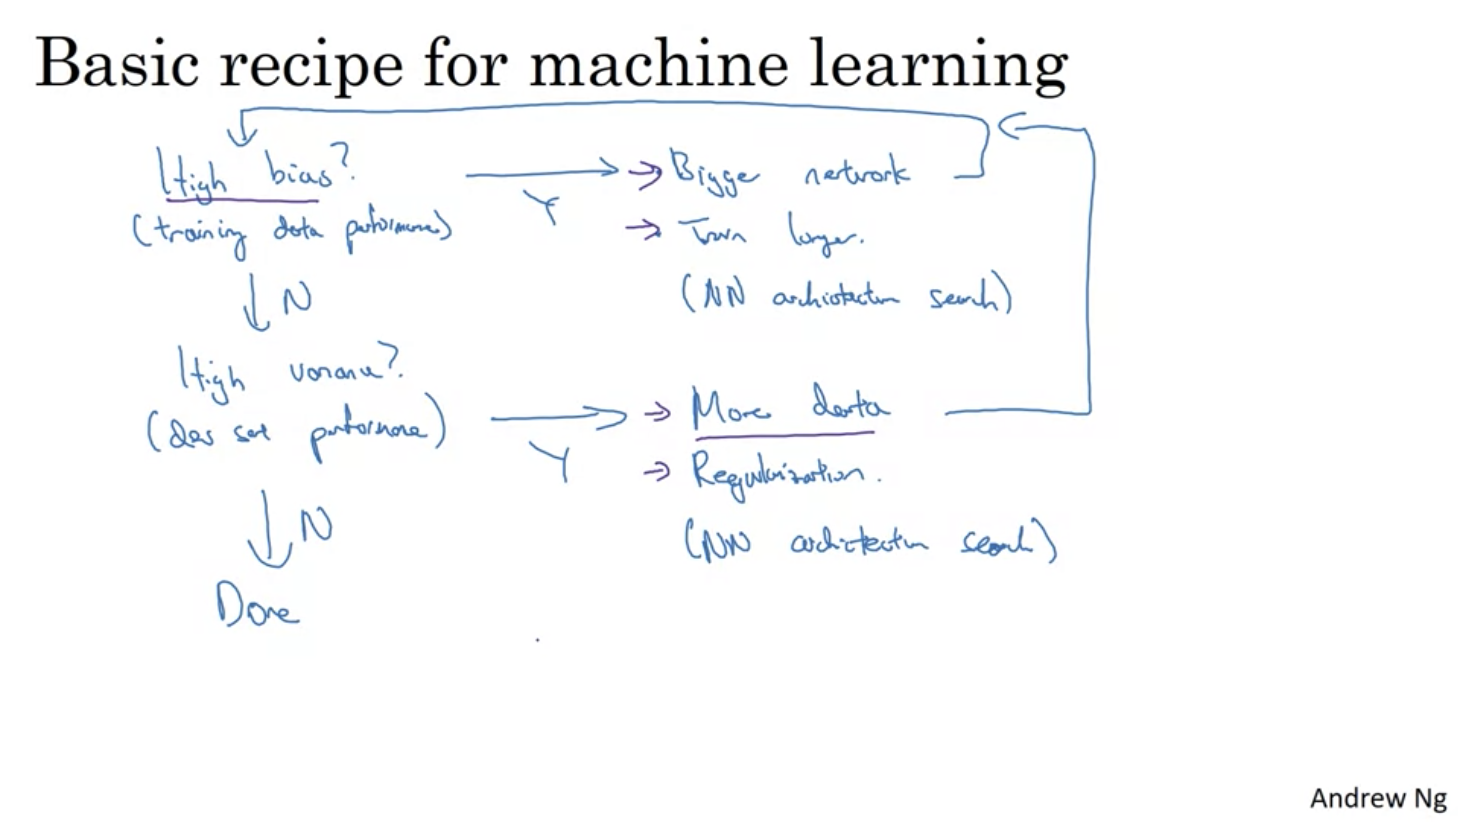 Basic recipe for machine learning
High bias? Y → Bigger network
(training data performance) → Train longer.
↓ N (NN architecture search)
High variance?
(dev set performance) Y → More data
→ Regularization.
↓ N (NN architecture search)
Done
Andrew Ng